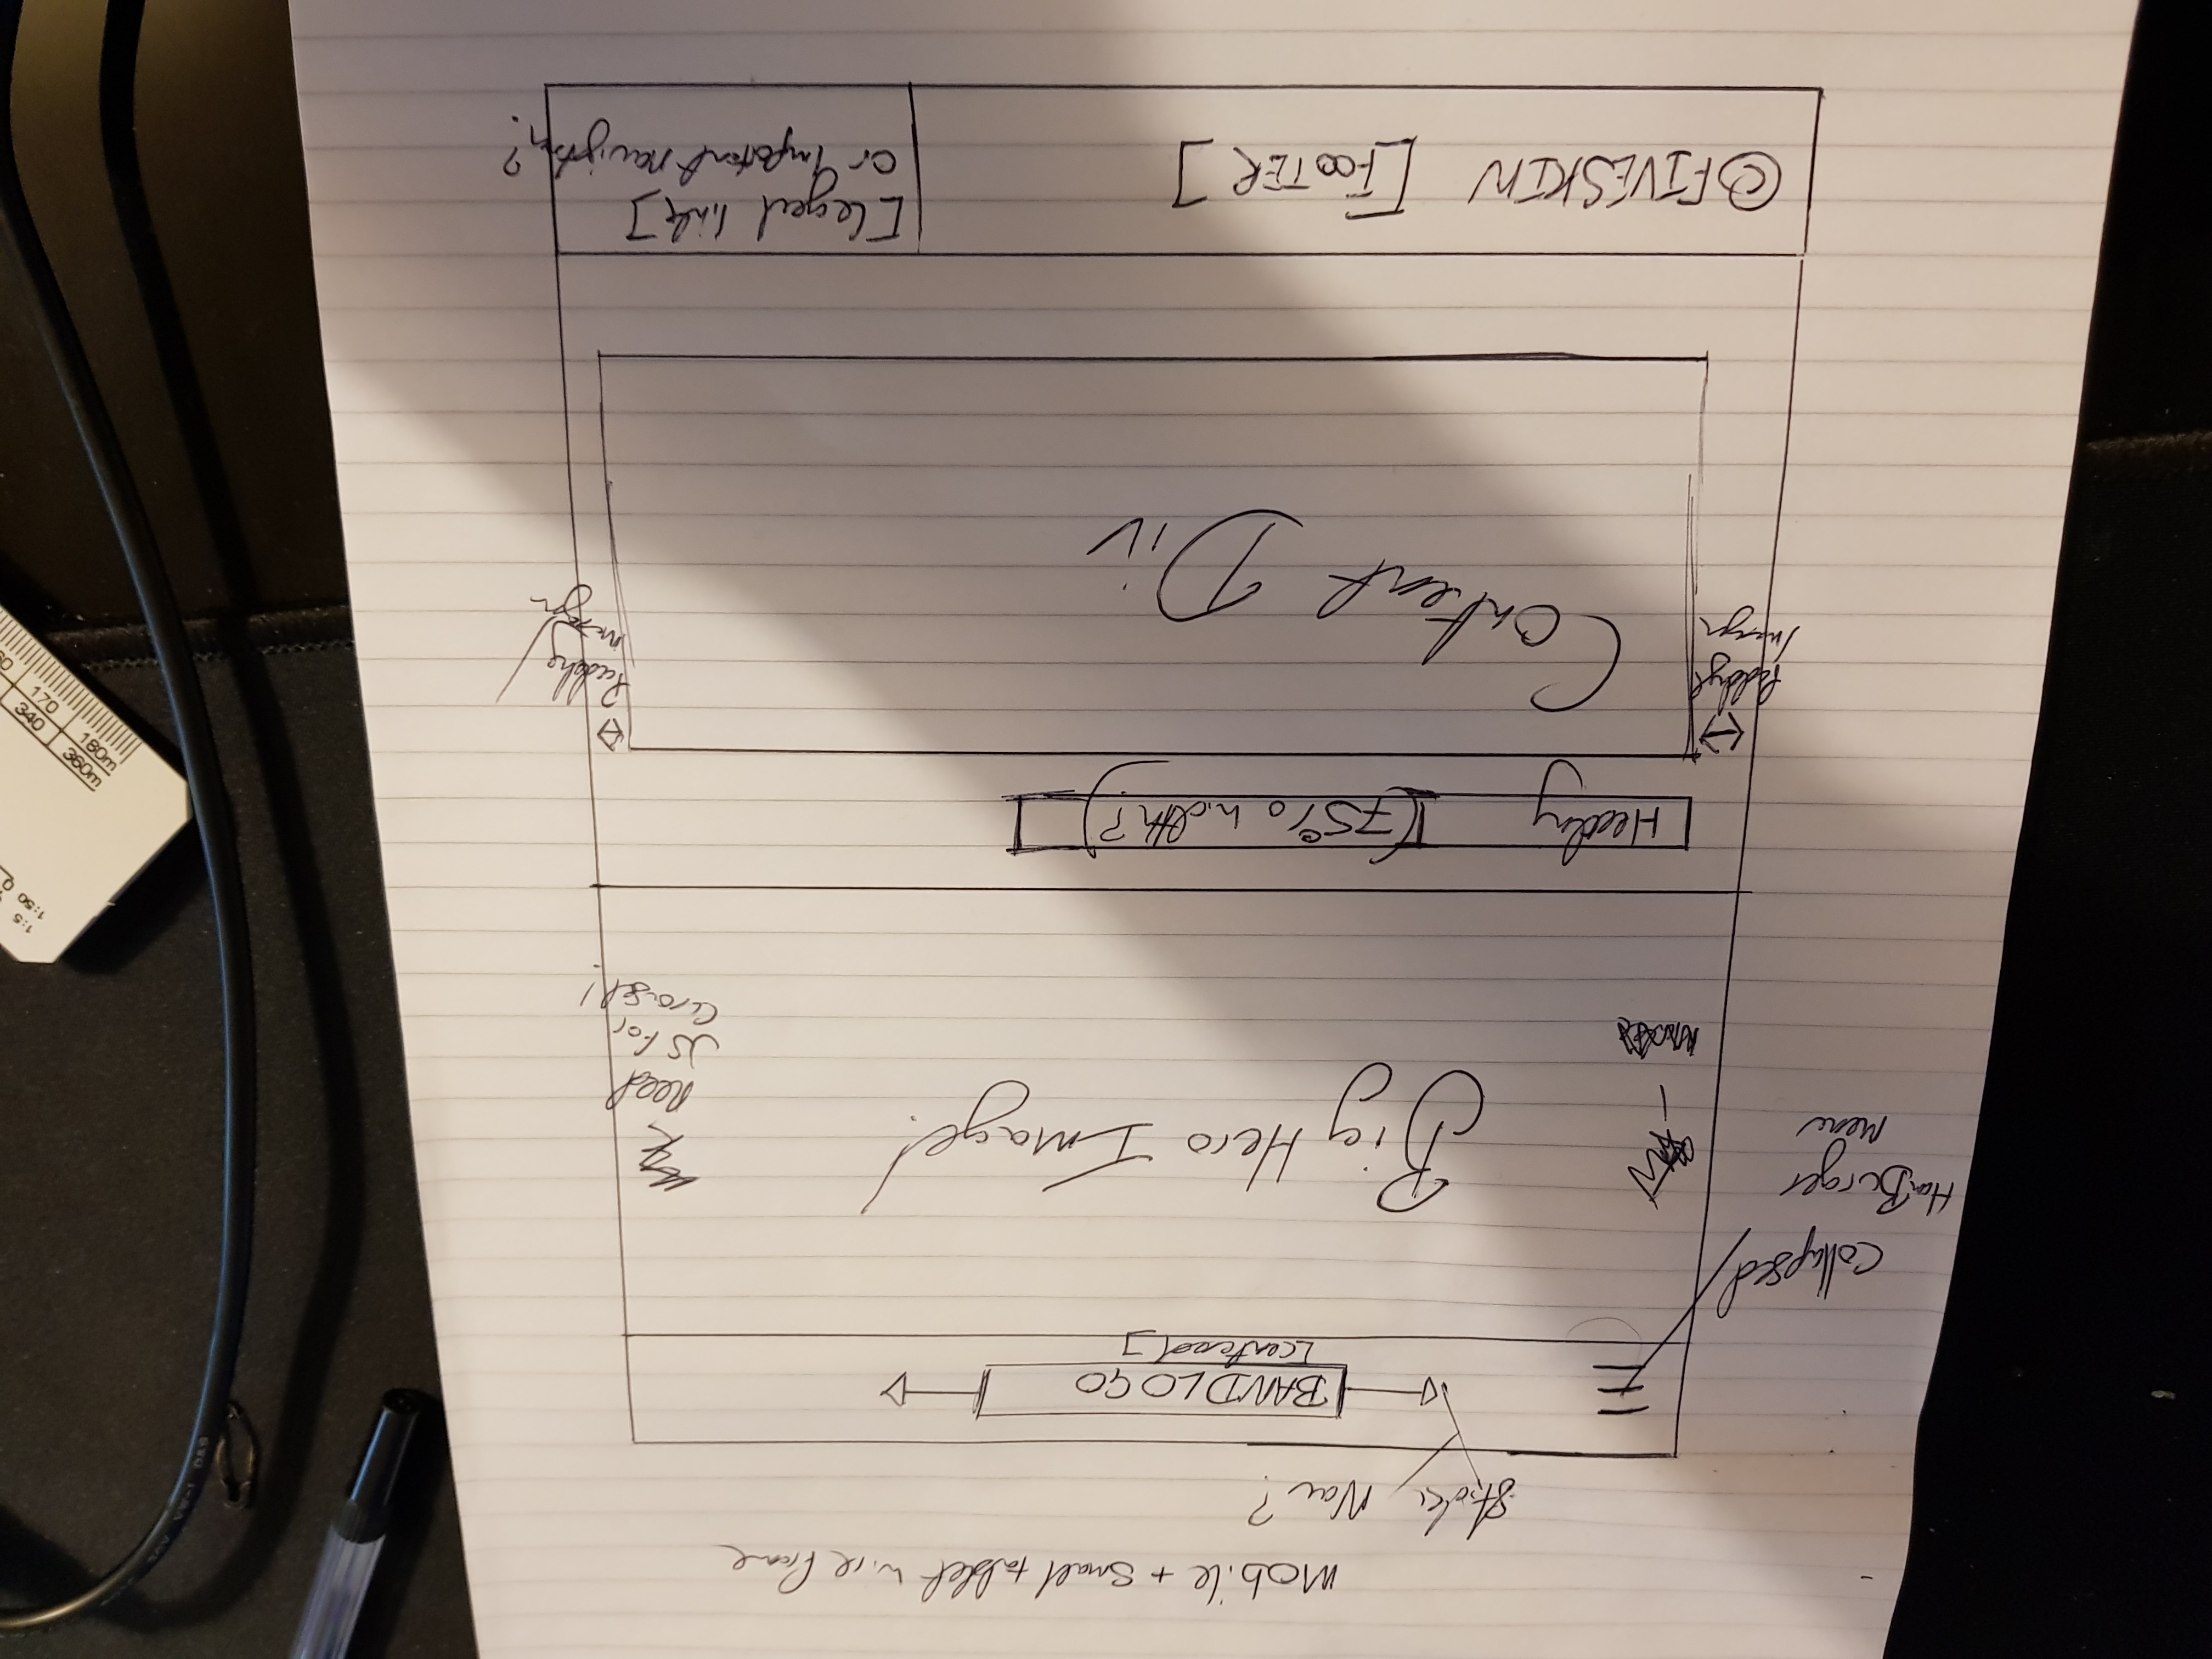 Mobile + Small tablet wire frame
Sticky Nav?
BAND LOGO
[centered]
Collapsed
HamBurger
menu
Big Hero Image!
Need
JS for
Carousel!
Heading (75% width?)
Padding
/margin
Padding/
margin
Content Div
© FIVESKIN [FOOTER]
[Legal links]
or important navigation?
1:5
1:50
340
170
360m
180m